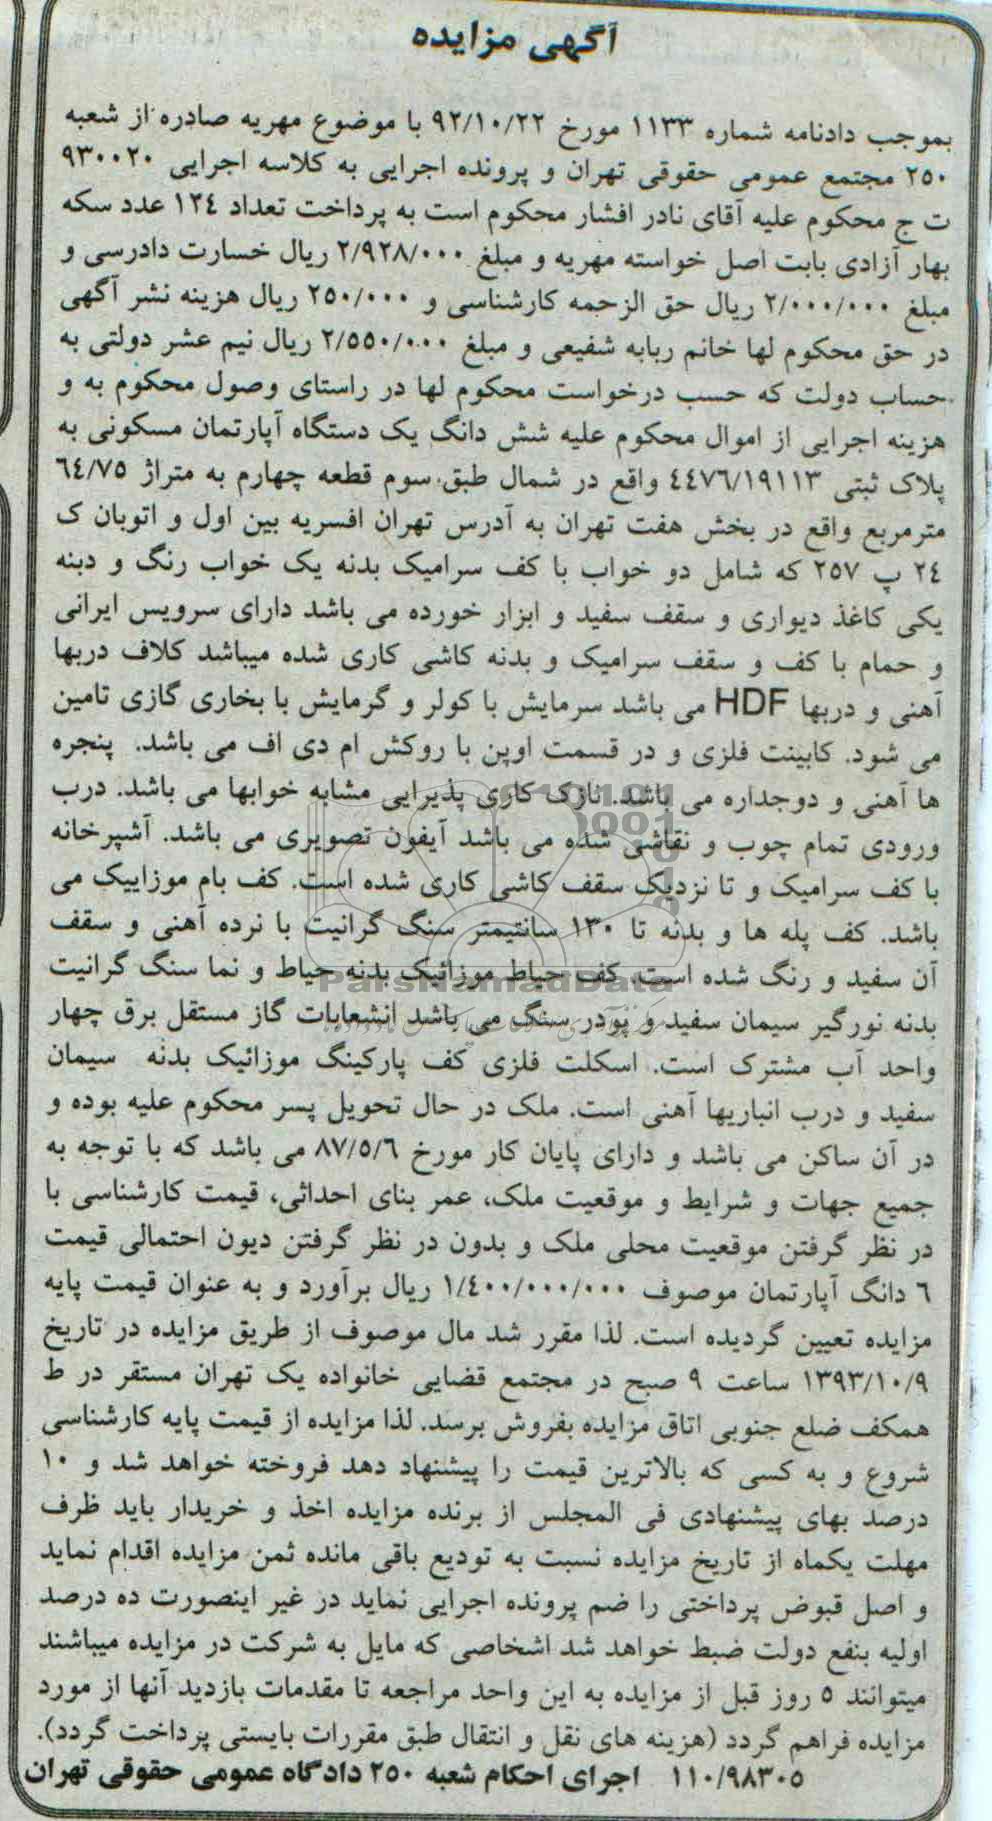 آگهی مزایده
بموجب دادنامه شماره ۱۱۳۳ مورخ ۹۲/۱۰/۲۲ با موضوع مهریه صادره از شعبه
۲۵۰ مجتمع عمومی حقوقی تهران و پرونده اجرایی به کلاسه اجرایی ۹۳۰۰۲۰
ت ج محکوم علیه آقای نادر افشار محکوم است به پرداخت تعداد ۱۲۴ عدد سکه
بهار آزادی بابت اصل خواسته مهریه و مبلغ ۲/۹۲۸/۰۰۰ ریال خسارت دادرسی و
مبلغ ۲/۰۰۰/۰۰۰ ریال حق الزحمه کارشناسی و ۲۵۰/۰۰۰ ریال هزینه نشر آگهی
در حق محکوم لها خانم ربابه شفیعی و مبلغ ۲/۵۵۰/۰۰۰ ریال نیم عشر دولتی به
حساب دولت که حسب درخواست محکوم لها در راستای وصول محکوم به و
هزینه اجرایی از اموال محکوم علیه شش دانگ یک دستگاه آپارتمان مسکونی به
پلاک ثبتی ۴۴۷۶/۱۹۱۱۳ واقع در شمال طبق سوم قطعه چهارم به متراژ ۶۴/۷۵
مترمربع واقع در بخش هفت تهران به آدرس تهران افسریه بین اول و اتوبان ک
۲۴ پ ۲۵۷ که شامل دو خواب با کف سرامیک بدنه یک خواب رنگ و دبنه
یکی کاغذ دیواری و سقف سفید و ابزار خورده می باشد دارای سرویس ایرانی
و حمام با کف و سقف سرامیک و بدنه کاشی کاری شده میباشد کلاف دربها
آهنی و دربها HDF می باشد سرمایش با کولر و گرمایش با بخاری گازی تامین
می شود. کابینت فلزی و در قسمت اوپن با روکش ام دی اف می باشد. پنجره
ها آهنی و دوجداره می باشد. نازک کاری پذیرایی مشابه خوابها می باشد. درب
ورودی تمام چوب و نقاشی شده می باشد آیفون تصویری می باشد. آشپرخانه
با کف سرامیک و تا نزدیک سقف کاشی کاری شده است. کف بام موزاییک می
باشد. کف پله ها و بدنه تا ۱۳۰ سانتیمتر سنگ گرانیت با نرده آهنی و سقف
آن سفید و رنگ شده است. کف حیاط موزائیک بدنه حیاط و نما سنگ گرانیت
ParsNamadData
بدنه نورگیر سیمان سفید و پودر سنگ می باشد انشعابات گاز مستقل برق چهار
واحد آب مشترک است. اسکلت فلزی کف پارکینگ موزائیک بدنه سیمان
سفید و درب انباریها آهنی است. ملک در حال تحویل پسر محکوم علیه بوده و
در آن ساکن می باشد و دارای پایان کار مورخ ۸۷/۵/۶ می باشد که با توجه به
جمیع جهات و شرایط و موقعیت ملک، عمر بنای احداثی، قیمت کارشناسی با
در نظر گرفتن موقعیت محلی ملک و بدون در نظر گرفتن دیون احتمالی قیمت
۶ دانگ آپارتمان موصوف ۱/۴۰۰/۰۰۰/۰۰۰ ریال برآورد و به عنوان قیمت پایه
مزایده تعیین گردیده است. لذا مقرر شد مال موصوف از طریق مزایده در تاریخ
۱۳۹۳/۱۰/۹ ساعت ۹ صبح در مجتمع قضایی خانواده یک تهران مستقر در ط
همکف ضلع جنوبی اتاق مزایده بفروش برسد. لذا مزایده از قیمت پایه کارشناسی
شروع و به کسی که بالاترین قیمت را پیشنهاد دهد فروخته خواهد شد و ۱۰
درصد بهای پیشنهادی فی المجلس از برنده مزایده اخذ و خریدار باید ظرف
مهلت یکماه از تاریخ مزایده نسبت به تودیع باقی مانده ثمن مزایده اقدام نماید
و اصل قبوض پرداختی را ضم پرونده اجرایی نماید در غیر اینصورت ده درصد
اولیه بنفع دولت ضبط خواهد شد اشخاصی که مایل به شرکت در مزایده میباشند
میتوانند ۵ روز قبل از مزایده به این واحد مراجعه تا مقدمات بازدید آنها از مورد
مزایده فراهم گردد (هزینه های نقل و انتقال طبق مقررات بایستی پرداخت گردد).
۱۱۰/۹۸۳۰۵ اجرای احکام شعبه ۲۵۰ دادگاه عمومی حقوقی تهران